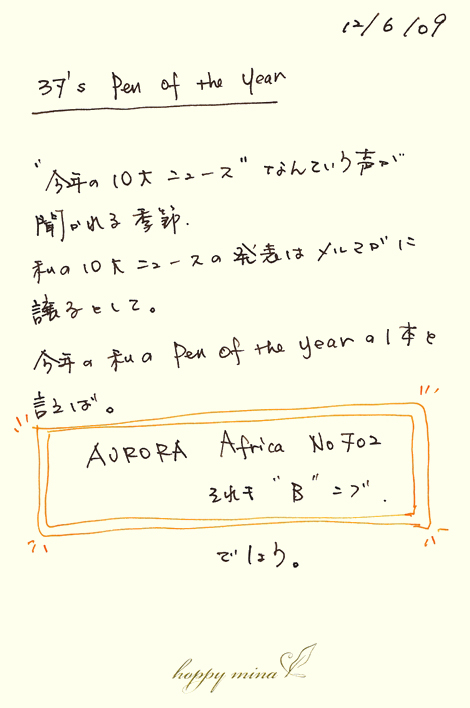 12/6/09
37's Pen of the year
"今年の10大ニュース"なんていう声が
聞かれる季節.
私の10大ニュースの発表はメルマガに
譲るとして。
今年の私のPen of the yearの1本と
言えば。
AURORA Africa No702
それも"B"ニブ.
でしょう。
happy mina